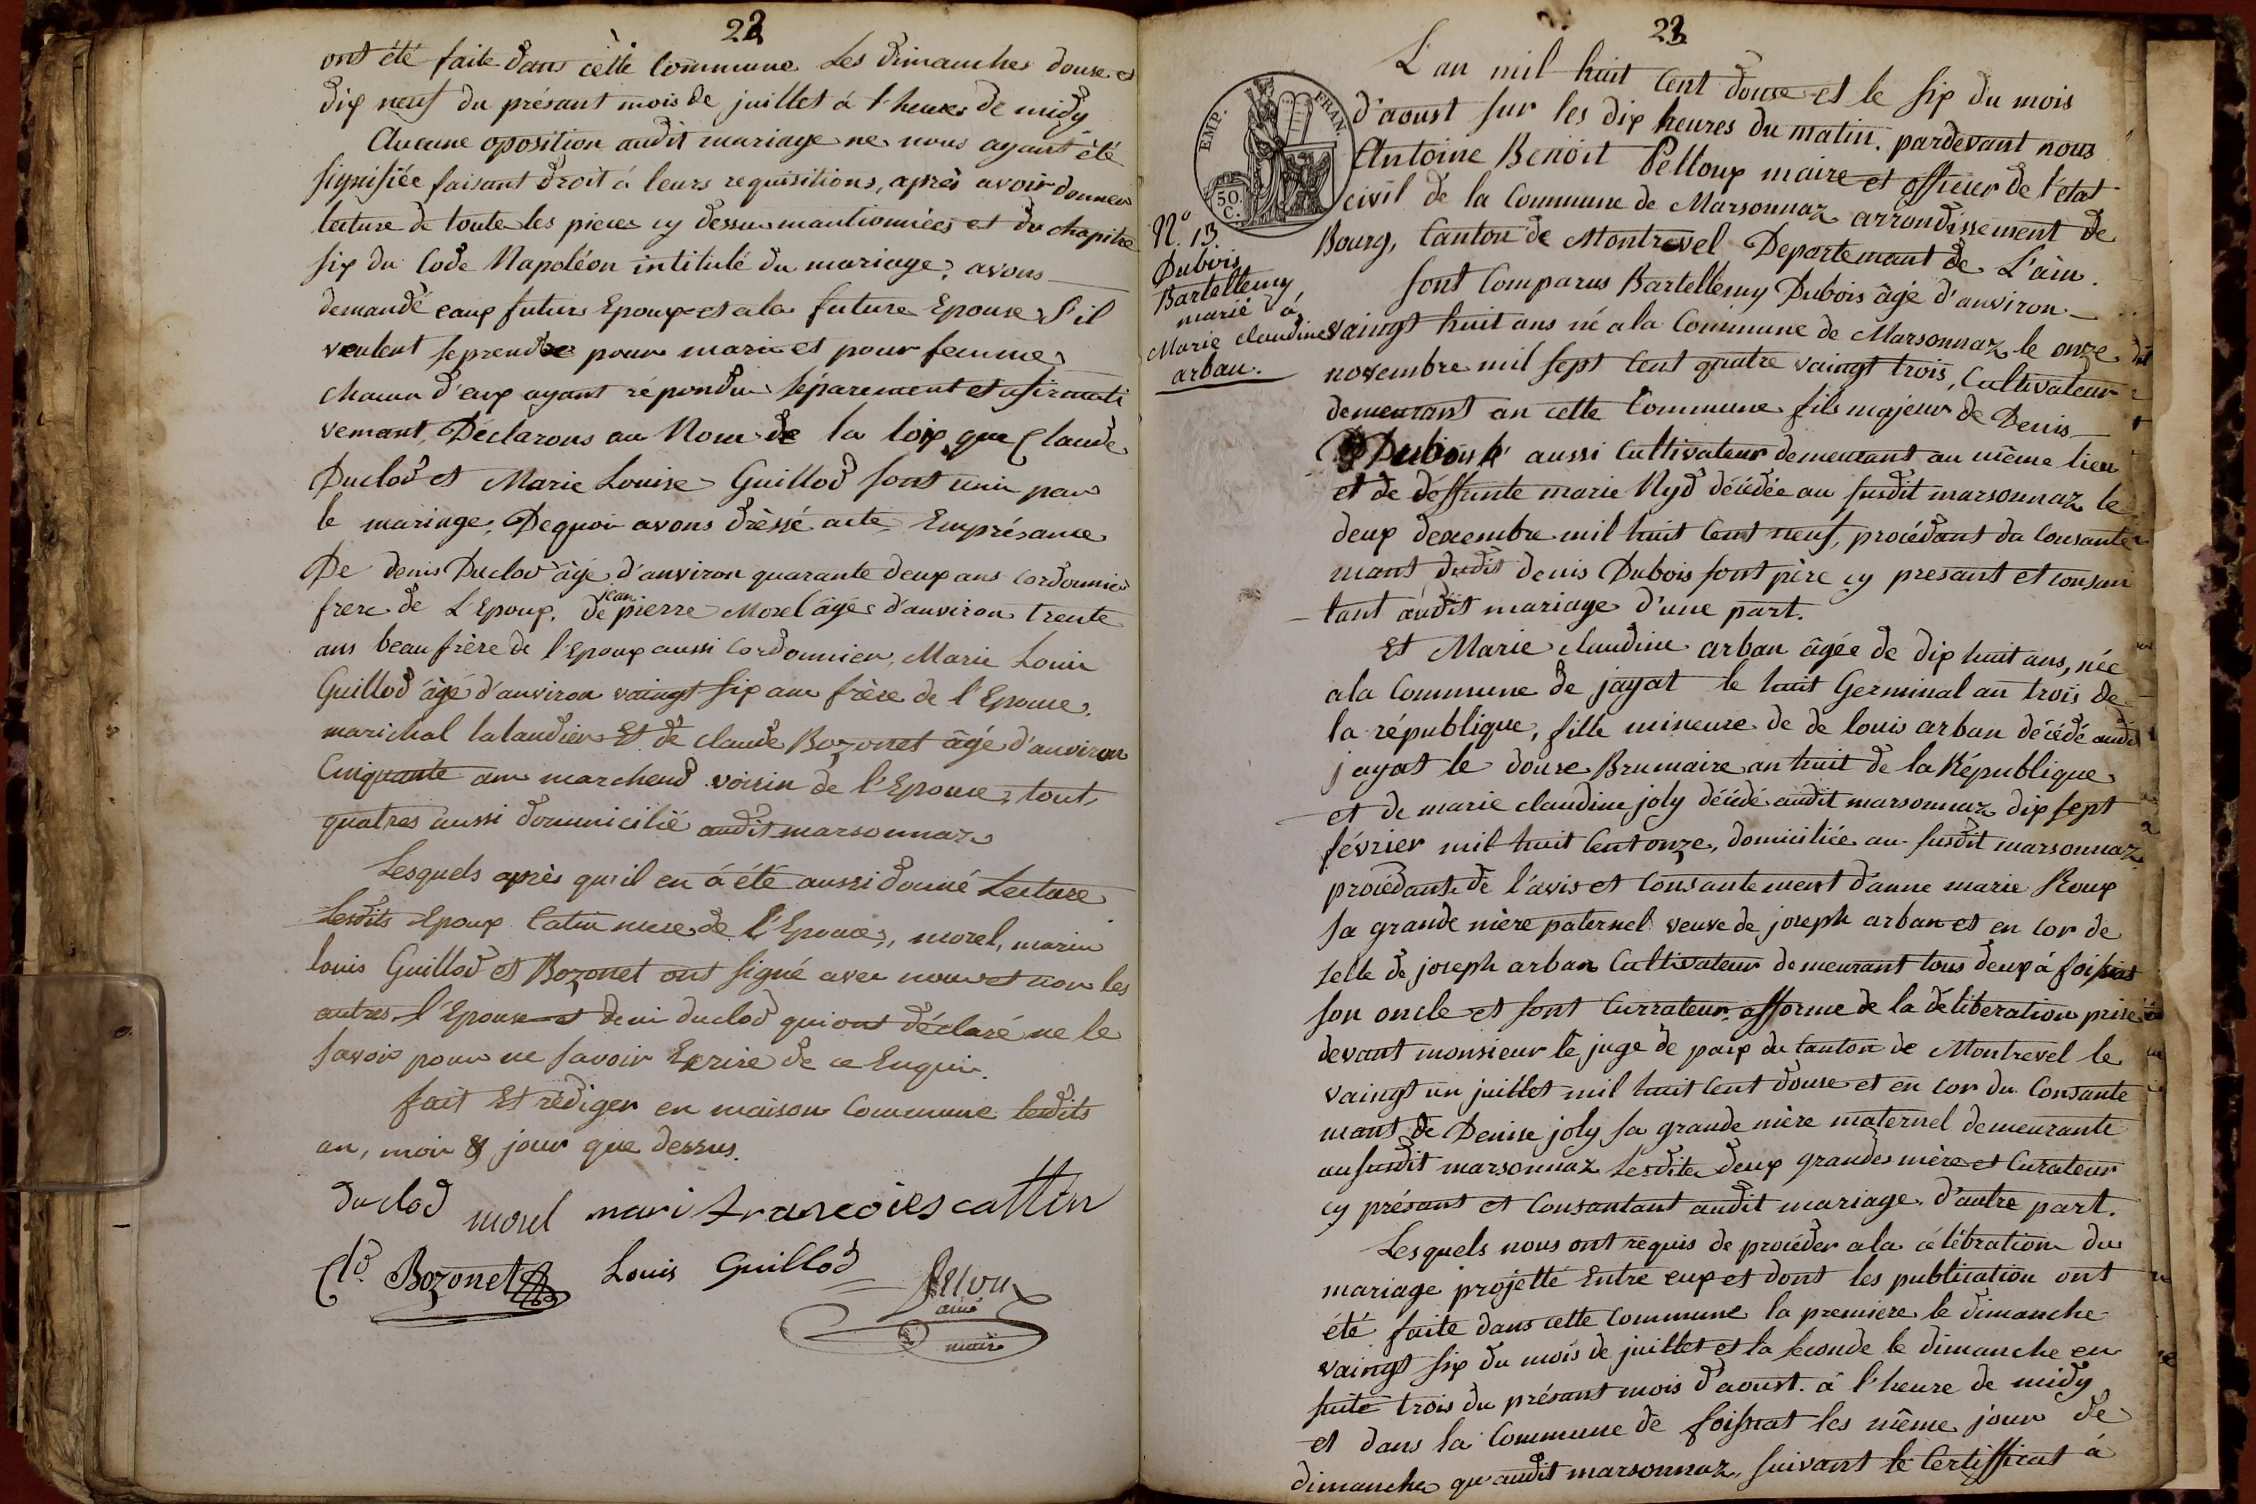 22
ont été faite dans cette Commune Les dimanches douse et
dix neuf du présant mois de juillet à l'heure de midy
Aucune oposition audit mariage ne nous ayant été
signifiée faisant droit à leurs requisitions, après avoir donner
lecture de toute les pieces cy dessu mantionnées et du chapitre
six du Code Napoléon intitulé du mariage, avons
demandé eaux futurs Epoux et ala future Epouse S'il
veulent se prendre pour mari et pour femme,
chacun d'eux ayant répondu séparement et afirmati
vemant, Déclarons au Nom de la loix que Claude
Duclod et Marie Louise Guillod sont unie par
le mariage, De quoi avons drèssé acte, Emprésance
De denis Duclod âgé d'anviron quarante deux ans cordonnier
frere de L'Epoux, de jean pierre Morel âgé d'anviron trente
ans beau frère de l'Epoux aussi cordonnier, Marie Louis
Guillod âgé d'anviron vaingt six ans frère de l'Epouse,
marichal talandier Et de claude Bozonet âgé d'anviron
Cinquante ans marchend voisin de l'Epouse, tout
quatres aussi domicilié audit marsonnaz
Lesquels après qu'il en á été aussi donné Lecture
Lesdits Epoux Catin mere de L'Epouse, morel, marie
louis Guillod et Bozonet ont signé avec nous et non les
autres l'Epouse et deni duclod qui ont déclaré ne le
savoir pour ne savoir Ecrire de ce Enquis.
fait Et rédiger en maison Commune lesdits
an, moi & jour que dessus.
duclod morel mari françoies cattin
Cld. Bozonet Louis Guillod Pelou
ainé
maire
23
L'an mil huit Cent douse et le six du mois
d'aoust sur les dix heures du matin, pardevant nous
Antoine Benoit Pelloux maire et officier de l'état
civil de la Commune de Marsonnaz arrondissement de
Bourg, Canton de Montrevel Departemant de L'ain.
EMP. FRAN.
50.
C.
N.° 13.
Dubois
Bartellemy
marié à
Marie Claudine
arban.
sont Comparus Bartellemy Dubois âgé d'anviron
vaingt huit ans né ala Commune de Marsonnaz le onze
novembre mil sept Cent quatre vaingt trois, Cultivateur
demeurant an cette Commune fils majeur de Denis
Dubois aussi Cultivateur demeurant au même lieu
et de deffunte marie Nyd décédée au susdit marsonnaz le
deux decembre mil huit Cent neuf, procédant du Consante
mant dudit denis Dubois sont père cy presant et consan
tant audit mariage d'une part.
Et Marie claudine arban âgée de dix huit ans, née
ala Commune de jayat le huit Germinal an trois de
la république, fille mineure de de louis arban décédé audit
jayat le douse Brumaire an huit de la République
et de marie claudine joly décédé audit marsonnaz dix sept
février mil huit Cent onze, domiciliée au susdit marsonnaz
procédante de l'avis et Consantement d'anne marie Roux
sa grande mère paternel veuve de joseph arban et en cor de
selle de joseph arban Cultivateur demeurant tous deux à foissiat
son oncle et sont Currateur, afforme de la déliberation prise
devant monsieur le juge de paix du Canton de Montrevel le
vaingt un juillet mil huit Cent douse et en cor du Consante
mant de Denise joly sa grande mère maternel demeurante
au susdit marsonnaz Lesdites deux grandes mère et Curateur
cy présant et Consantant audit mariage d'autre part.
Lesquels nous ont requis de procéder ala célébration du
mariage projetté Entre eux et dont les publication ont
été faite dans cette Commune la premiere le dimanche
vaingt six du mois de juillet et la seconde le dimanche en
suite trois du présant mois d'aoust. à l'heure de midy
et dans la Commune de foissiat les même jour de
dimanche qu'audit marsonnaz, suivant le Certifficat à